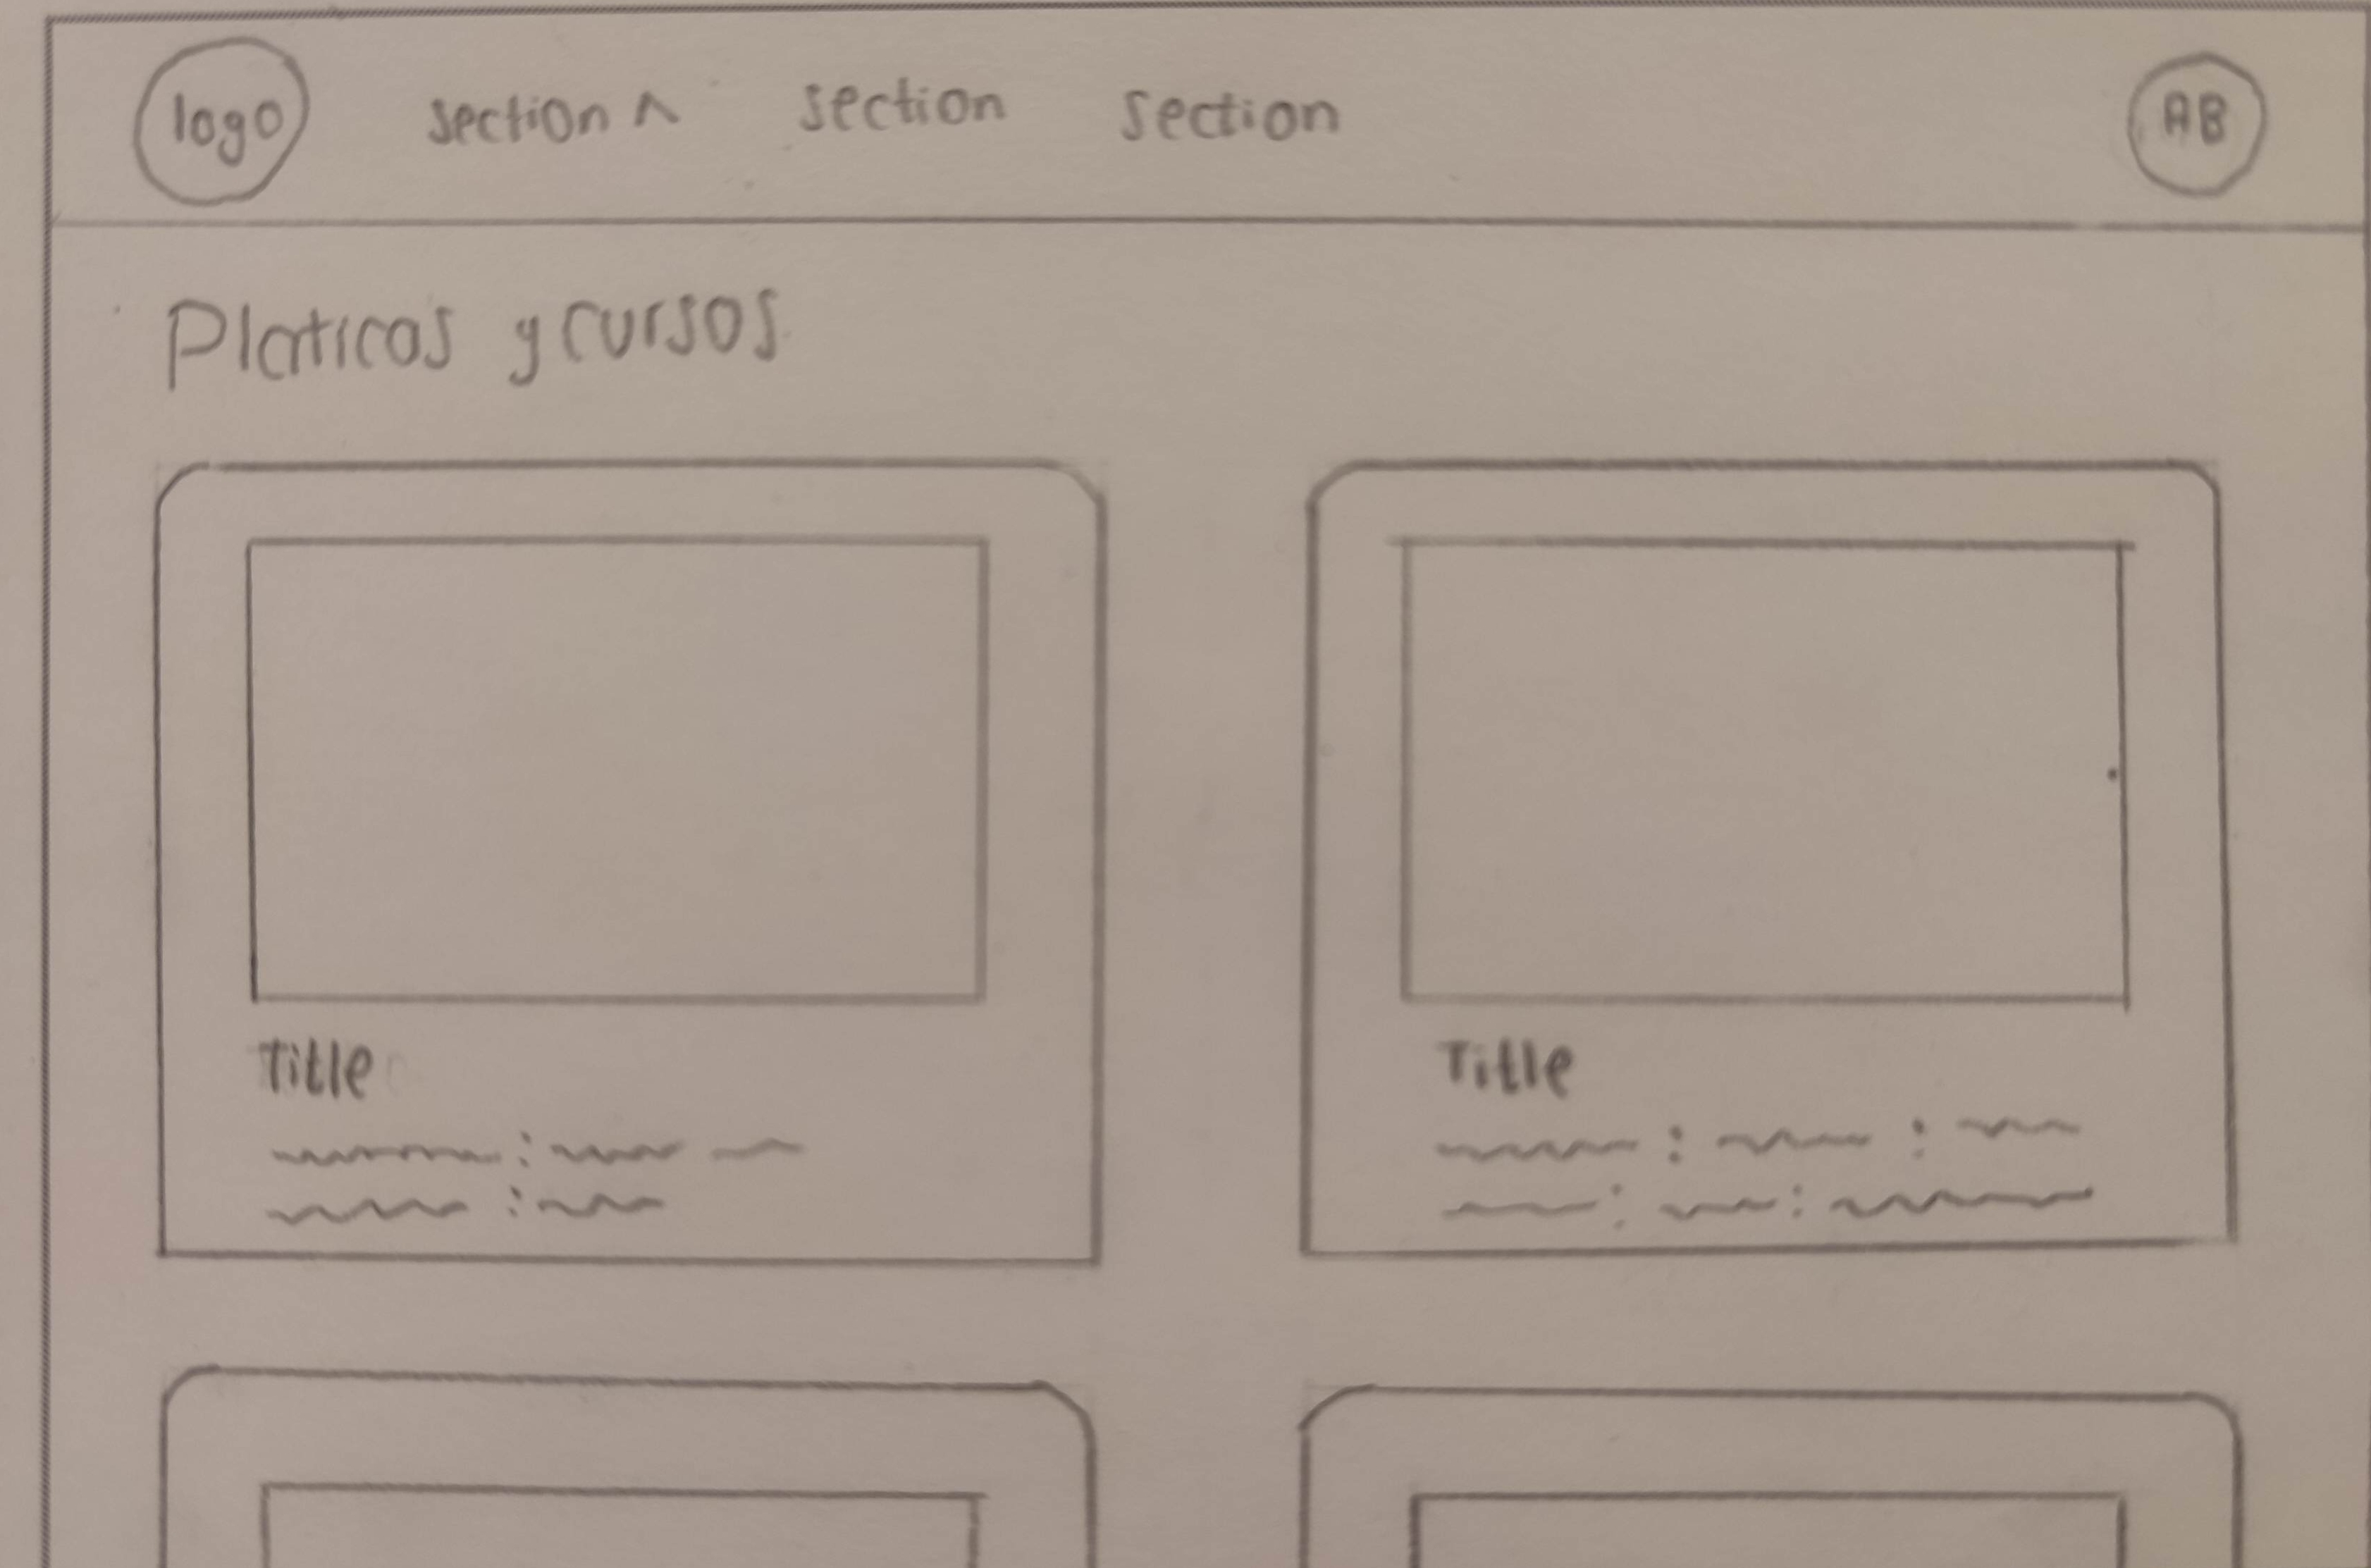 logo section ^ section section AB
Platicas y cursos
Title Title